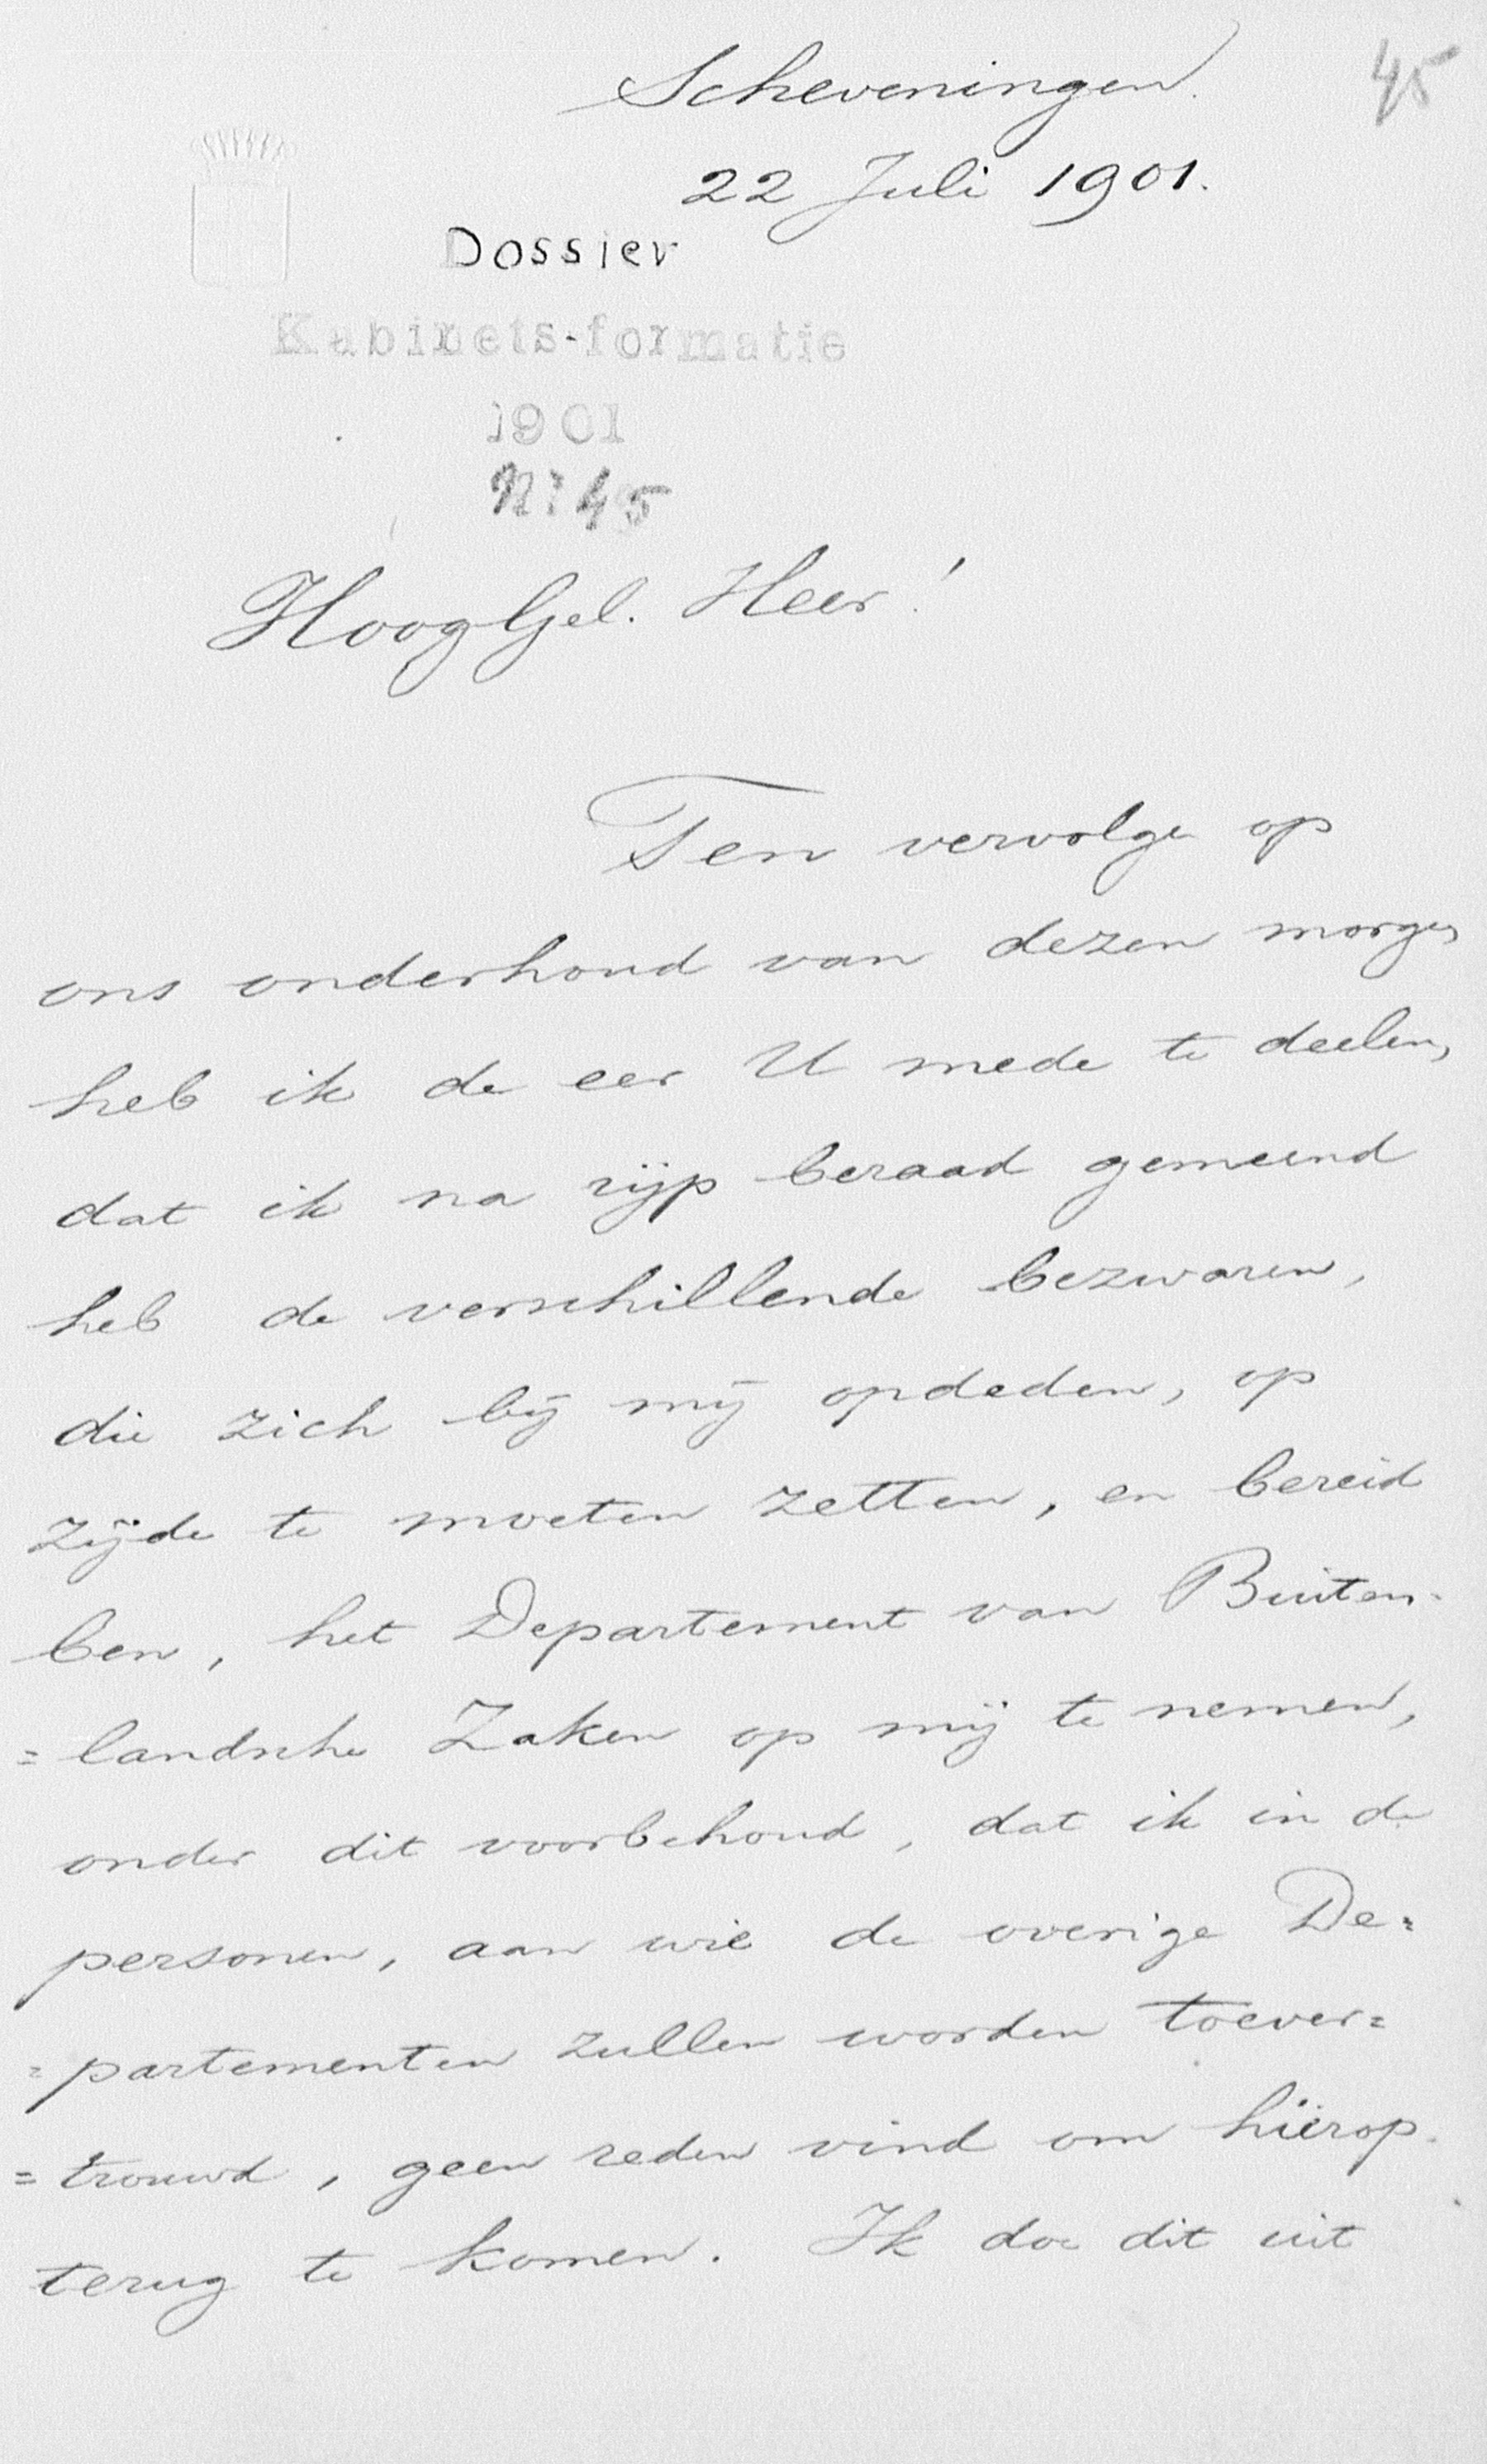 Scheveningen.
45
22 Juli 1901.
Dossier
Kabinets-formatie
1901
No 45
HoogGel. Heer!
Ten vervolge op
ons onderhoud van dezen morgen
heb ik de eer U mede te deelen,
dat ik na rijp beraad gemeend
heb de verschillende bezwaren,
die zich bij mij opdeden, op
zijde te moeten zetten, en bereid
ben, het Departement van Buiten-
=landsche Zaken op mij te nemen,
onder dit voorbehoud, dat ik in de
personen, aan wie de overige De=
=partementen zullen worden toever=
=trouwd, geen reden vind om hierop
terug te komen. Ik doe dit uit